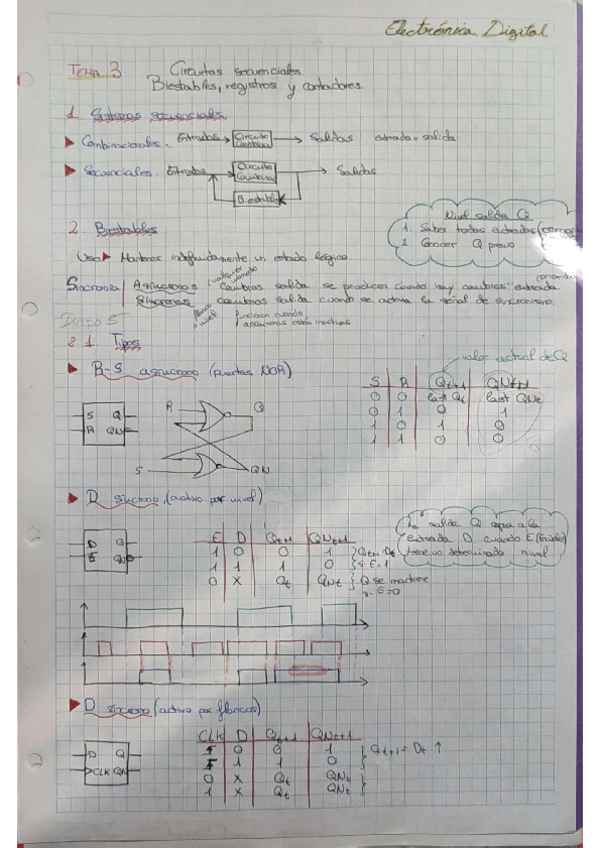 Electrónica Digital
TEMA 3 Circuitos secuenciales.
Biestables, registros y contadores.
1. Sistemas secuenciales
Combinacionales. Entradas Circuito Combina Salidas entrada = salida
Secuenciales. Entradas Circuito Combina Salidas
Biestable
Nivel salida Q
1. Saber todas entradas
2. Conocer Q previo
2. Biestables
Uso Mantener indefinidamente un estado lógico.
cualquier momento
Sincronía Asíncronos Cambios salida se producen cuando hay cambios entrada
Síncronos cambios salida cuando se activa la señal de sincronismo.
flanco nivel funcionan cuando
asíncronas están inactivas
2.1. Tipos
valor actual de Q
R-S asíncrono (puertas NOR)
S R Qt+1 QNt+1
0 0 last Qt last QNt
0 1 0 1
1 0 1 0
1 1 0 0
S Q
R QN
R Q
S QN
D síncrono (activo por nivel)
La salida Q copia a la
entrada D cuando E (Enable)
tiene un determinado nivel
D Q
E QN
E D Qt+1 QNt+1
1 0 0 1
1 1 1 0
0 x Qt QNt
Qt+1 = Dt
si E=1
Q se mantiene
si E=0
D síncrono (activo por flancos)
D Q
CLK QN
CLK D Qt+1 QNt+1
0 0 1
1 1 0
0 x Qt QNt
1 x Qt QNt
Qt+1 = Dt ↑